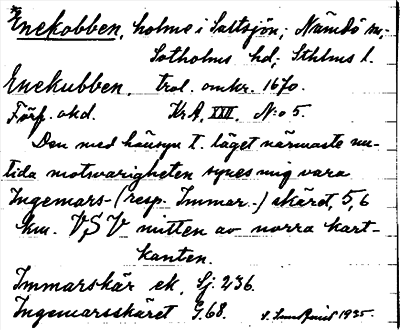 *Enekobben, holme i Saltsjön, Nämdö sn,
Sotholms hd, Sthlms l.
Enekubben, trol. omkr. 1670.
Förf. okd. KrA, XXII, No 5.
Den med hänsyn t. läget närmaste nu-
tida motsvarigheten synes mig vara
Ingemars- (resp. Immar-) skäret, 5,6
km. VSV mitten av norra kart-
kanten.
Immarskär ek. Sj. 236.
Ingemarsskäret G. 68. 1935